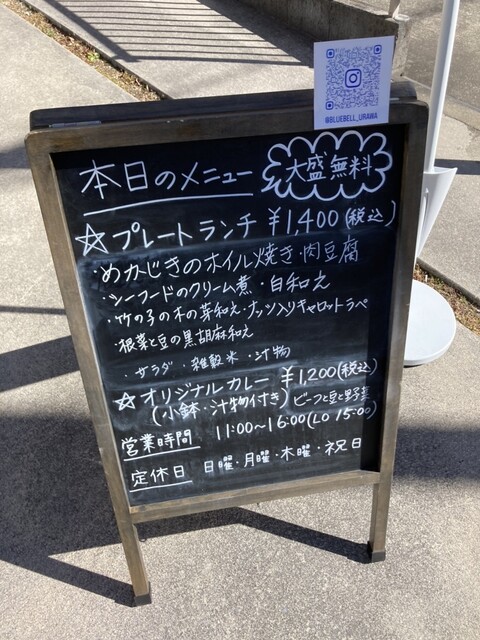 @BLUEBELL_URAWA
本日のメニュー
大盛無料
☆プレートランチ ¥1,400(税込)
・めかじきのホイル焼き・肉豆腐
・シーフードのクリーム煮・白和え
・竹の子の木の芽和え・ナッツ入りキャロットラペ
・根菜と豆の黒胡麻和え
・サラダ・雑穀米・汁物
☆オリジナルカレー ¥1,200(税込)
(小鉢・汁物付き) ビーフと豆と野菜
営業時間 11:00~16:00(LO 15:00)
定休日 日曜・月曜・木曜・祝日